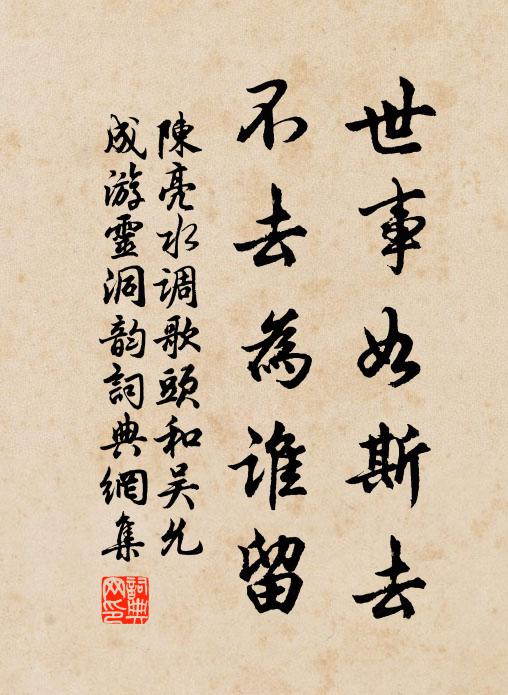 世事如斯去
不去為誰留
陳亮水調歌頭和吳允
成游靈洞韵詞典網集
詞典网印